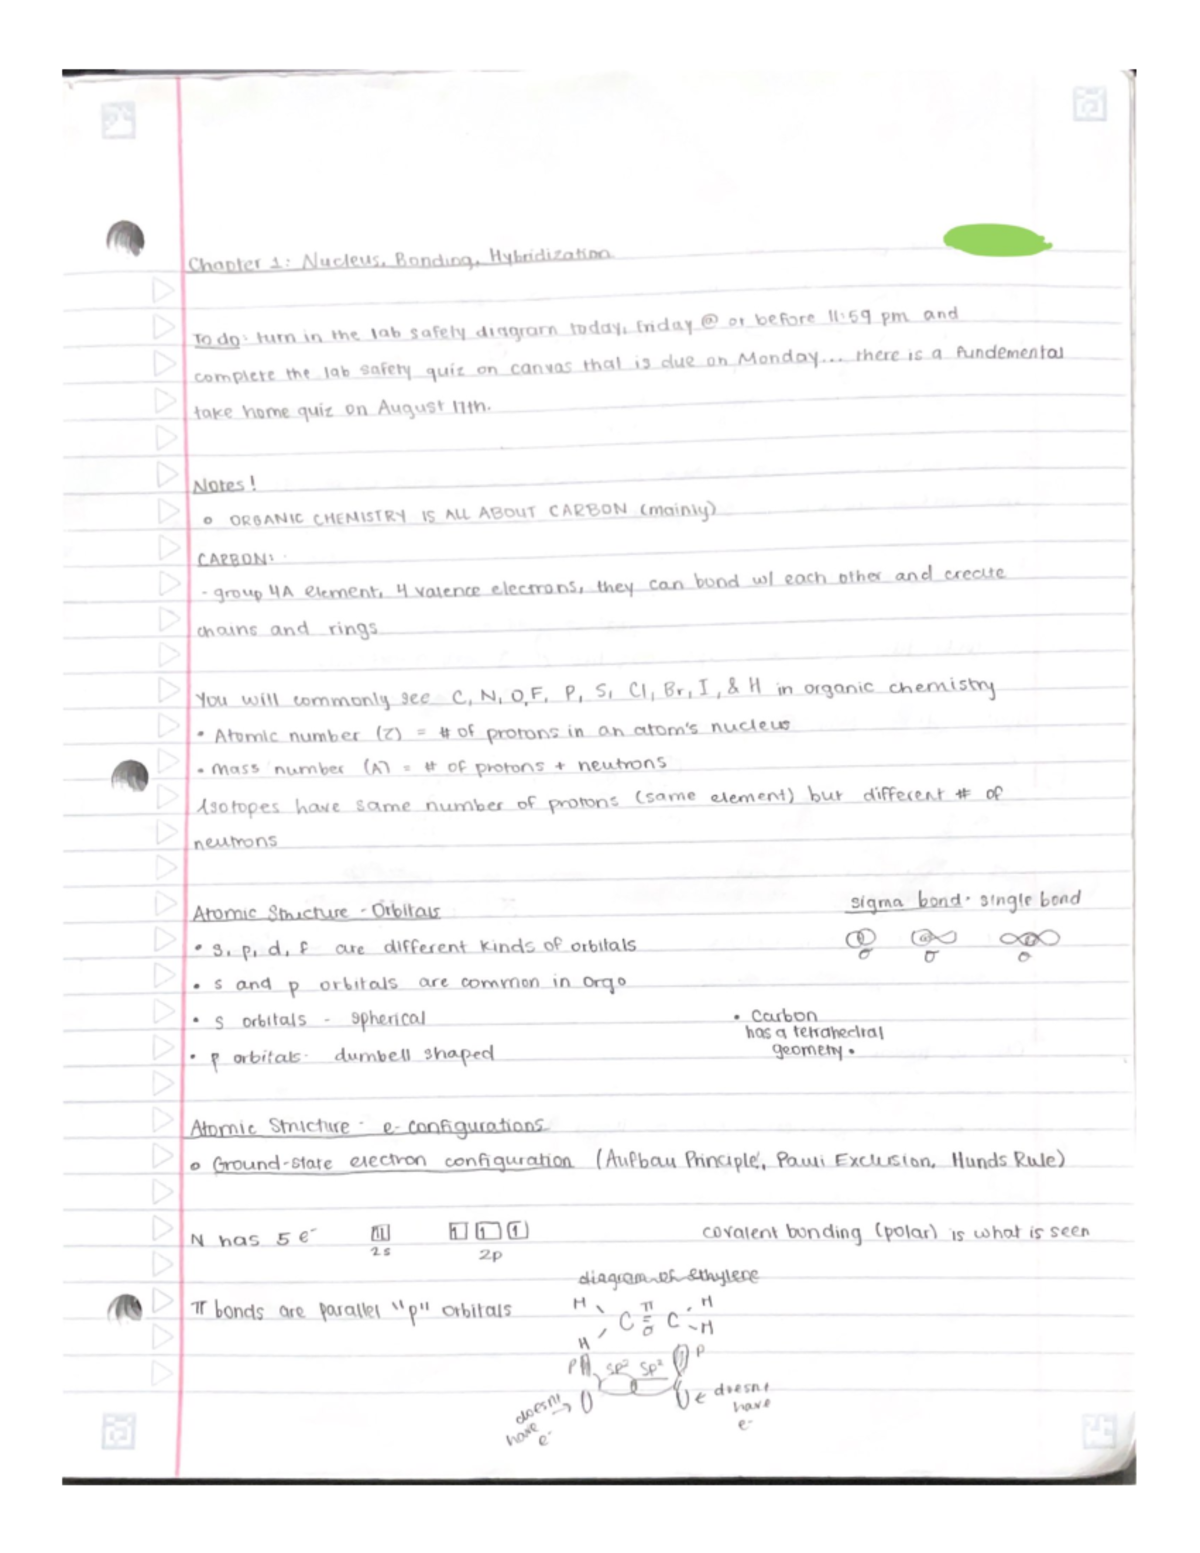 Chapter 1: Nucleus, Bonding, Hybridization
To do: turn in the lab safety diagram today, Friday @ or before 11:59 pm and
complete the lab safety quiz on canvas that is due on Monday... there is a fundemental
take home quiz on August 17th.
Notes!
o ORGANIC CHEMISTRY IS ALL ABOUT CARBON (mainly)
CARBON:
- group 4A element, 4 valence electrons, they can bond w/ each other and create
chains and rings
You will commonly see C, N, O, F, P, S, Cl, Br, I, & H in organic chemistry
• Atomic number (Z) = # of protons in an atom's nucleus
• Mass number (A) = # of protons + neutrons
Isotopes have same number of protons (same element) but different # of
neutrons
Atomic Structure - Orbitals
sigma bond - single bond
• s, p, d, f are different kinds of orbitals
σ σ σ
• s and p orbitals are common in Orgo
• s orbitals - spherical
• Carbon
has a tetrahedral
geometry •
• p orbitals - dumbell shaped
Atomic Structure - e- configurations
o Ground-state electron configuration (Aufbau Principle, Pauli Exclusion, Hunds Rule)
N has 5 e- 1l 1 1 1
2s 2p
covalent bonding (polar) is what is seen
diagram of ethylene
π bonds are parallel "p" orbitals
H H
C π C
σ
H H
P sp² sp² P
doesnt have e-
doesnt have e-